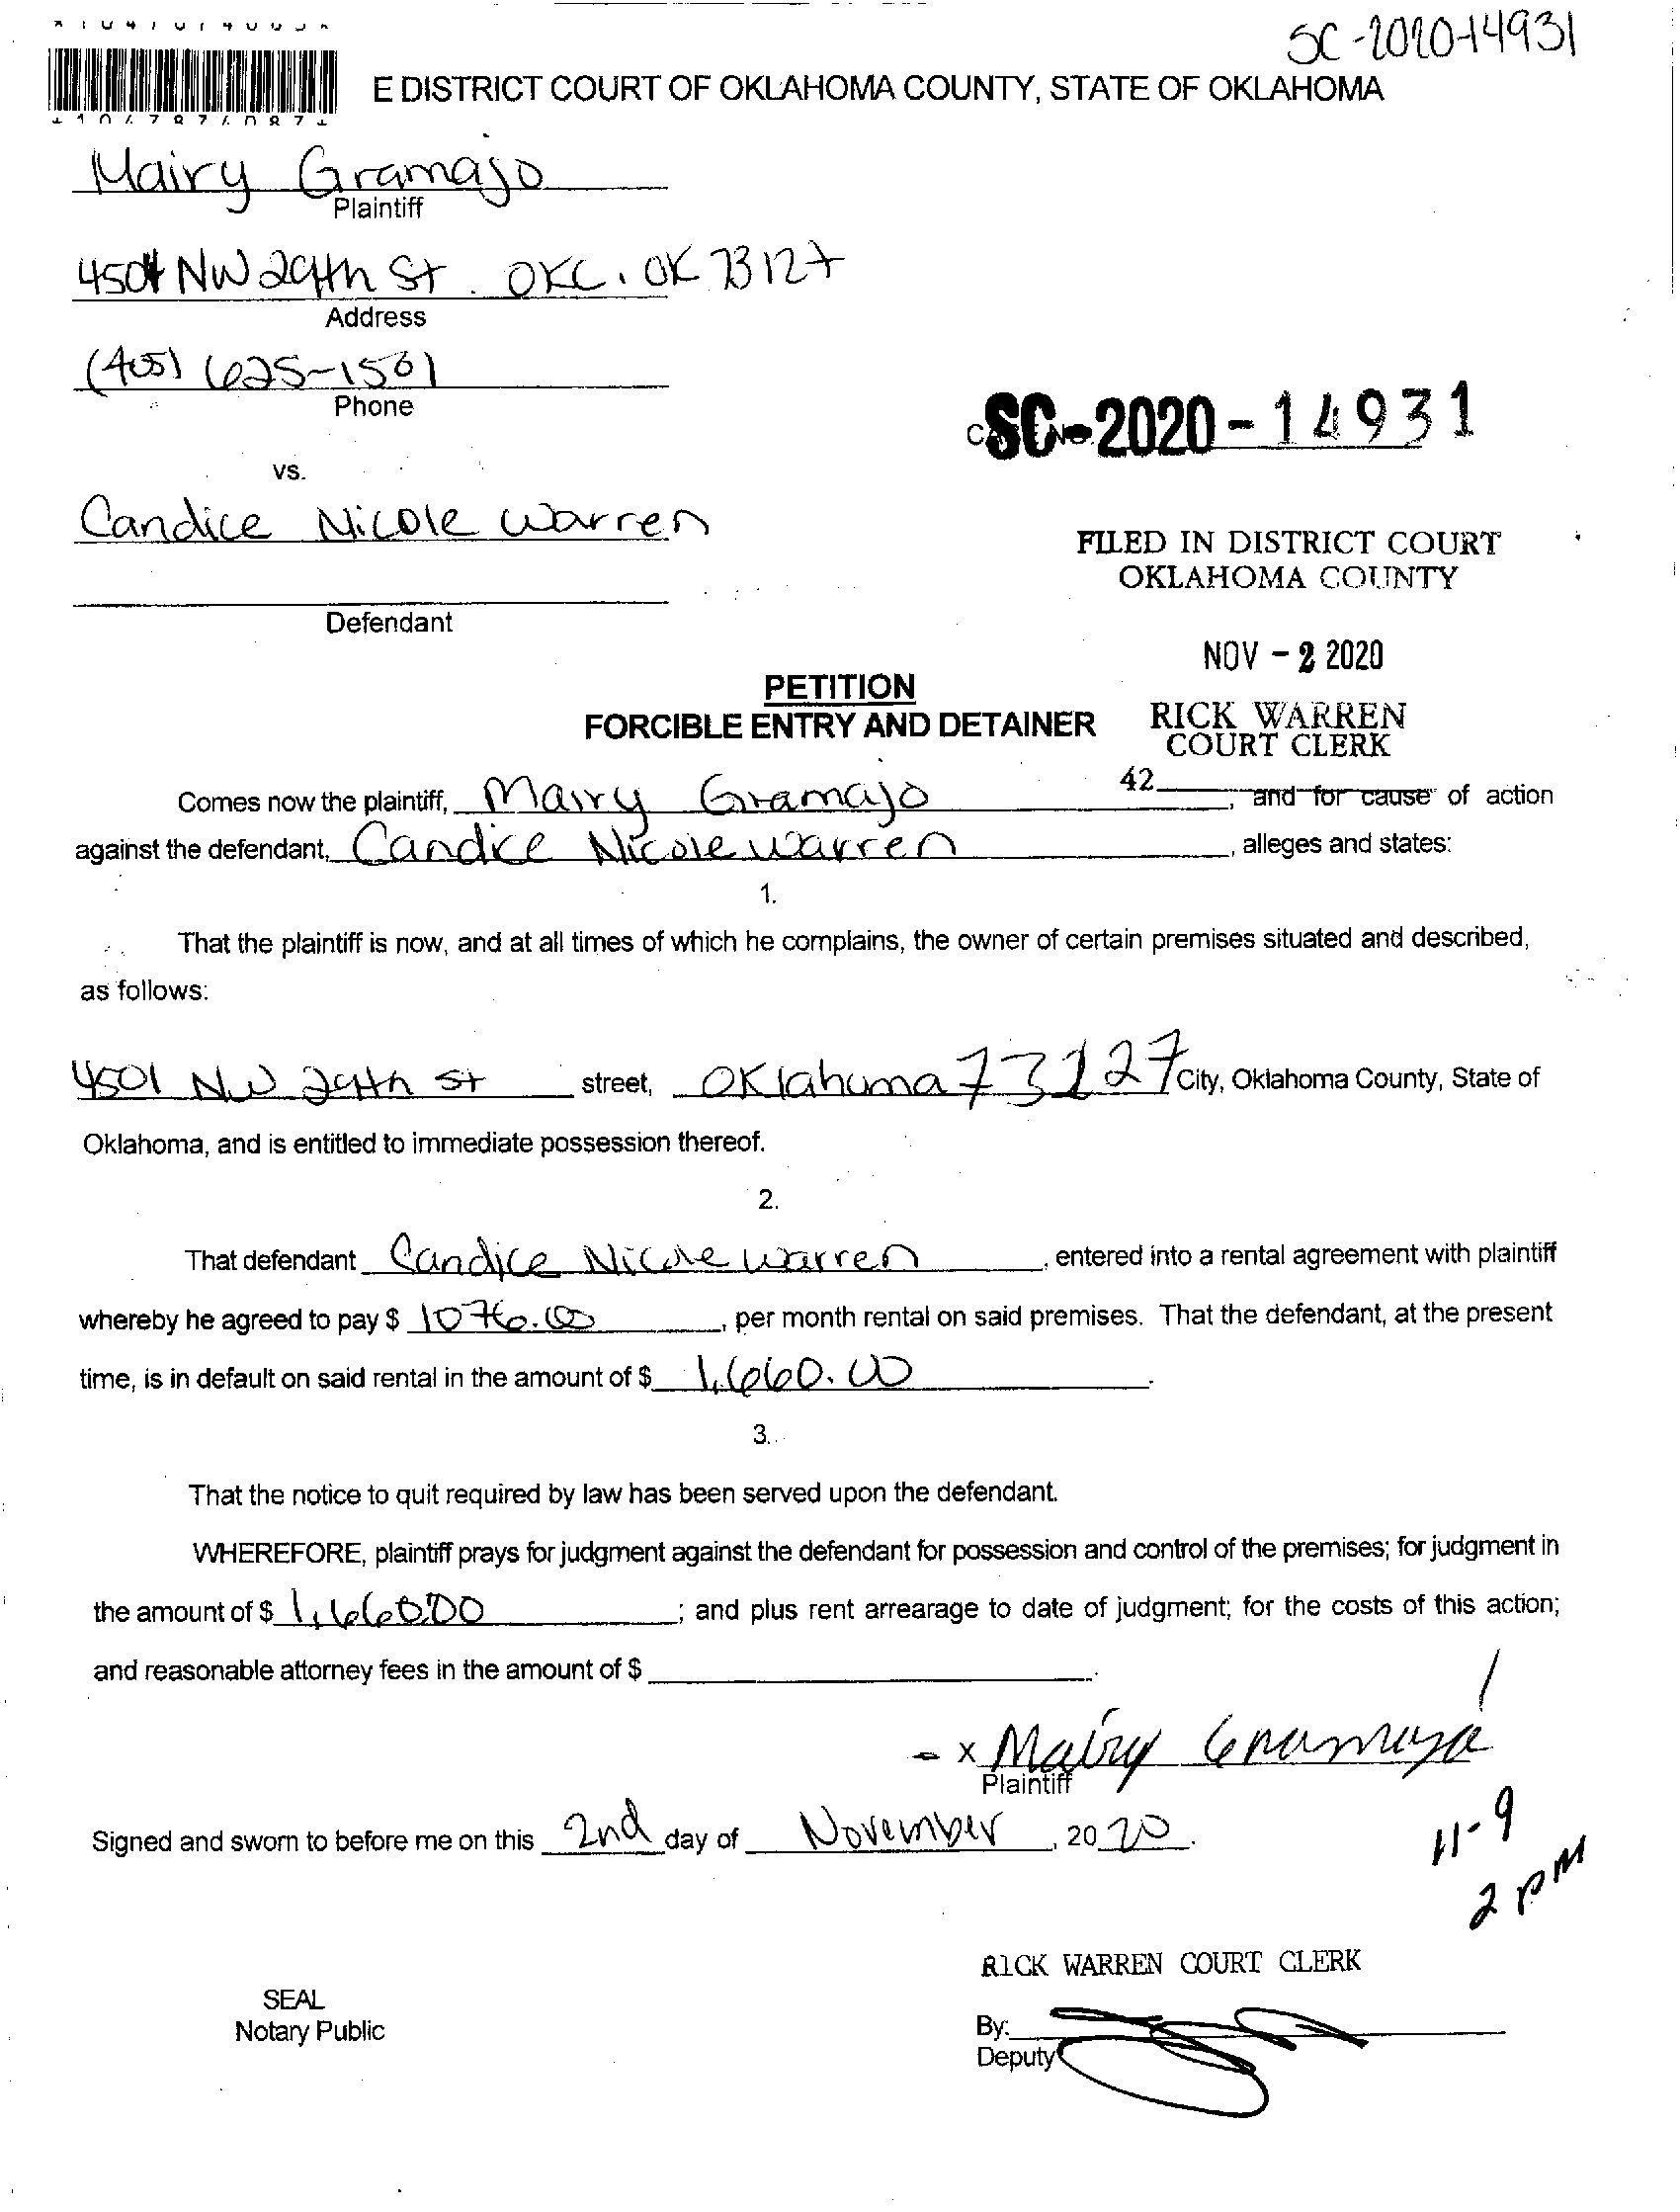 SC-2020-14931
E DISTRICT COURT OF OKLAHOMA COUNTY, STATE OF OKLAHOMA
Mairy Gramajo
Plaintiff
NW 29th St. OKC, OK 73127
Address
(405) 625-1561
Phone
SC-2020-14931
vs.
Candice Nicole Warren
FILED IN DISTRICT COURT
OKLAHOMA COUNTY
Defendant
NOV - 2 2020
PETITION
FORCIBLE ENTRY AND DETAINER
RICK WARREN
COURT CLERK
42
Comes now the plaintiff, Mairy Gramajo, and for cause of action
against the defendant, Candice Nicole Warren, alleges and states:
1.
That the plaintiff is now, and at all times of which he complains, the owner of certain premises situated and described,
as follows:
4501 NW 29th St street, Oklahoma 73127 City, Oklahoma County, State of
Oklahoma, and is entitled to immediate possession thereof.
2.
That defendant Candice Nicole Warren, entered into a rental agreement with plaintiff
whereby he agreed to pay $ 1076.00, per month rental on said premises. That the defendant, at the present
time, is in default on said rental in the amount of $ 1,660.00.
3.
That the notice to quit required by law has been served upon the defendant.
WHEREFORE, plaintiff prays for judgment against the defendant for possession and control of the premises; for judgment in
the amount of $ 1,660.00; and plus rent arrearage to date of judgment; for the costs of this action;
and reasonable attorney fees in the amount of $
x Mairy Gramajo
Plaintiff
Signed and sworn to before me on this 2nd day of November, 2020.
11-9
2 PM
RICK WARREN COURT CLERK
SEAL
Notary Public
By:
Deputy